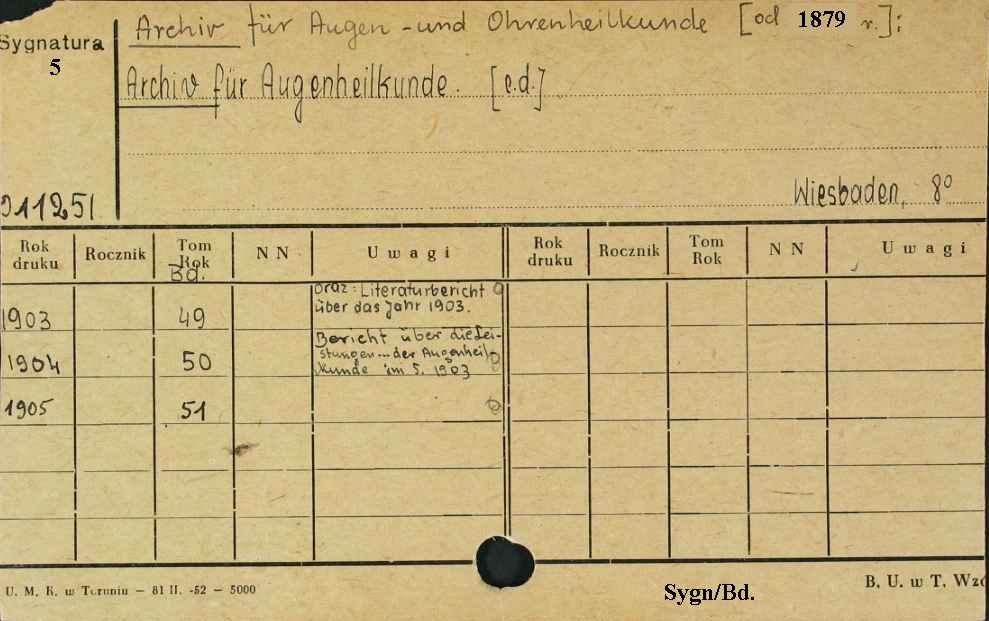 Archiv für Augen-und Ohrenheilkunde [od 1879 r.]:
Sygnatura
5
Archiv für Augenheilkunde. [e.d.]
Wiesbaden, 8°
011251
Rok druku Rocznik Tom Rok Bd. N N Uwagi Rok druku Rocznik Tom Rok N N Uwagi
oraz: Literaturbericht
über das Jahr 1903.
1903 49
Bericht über die Lei-
stungen... der Augenheil-
kunde im J. 1903
1904 50
1905 51
U. M. K. w Toruniu — 81 II. -52 — 5000
Sygn/Bd.
B. U. w T. Wzó